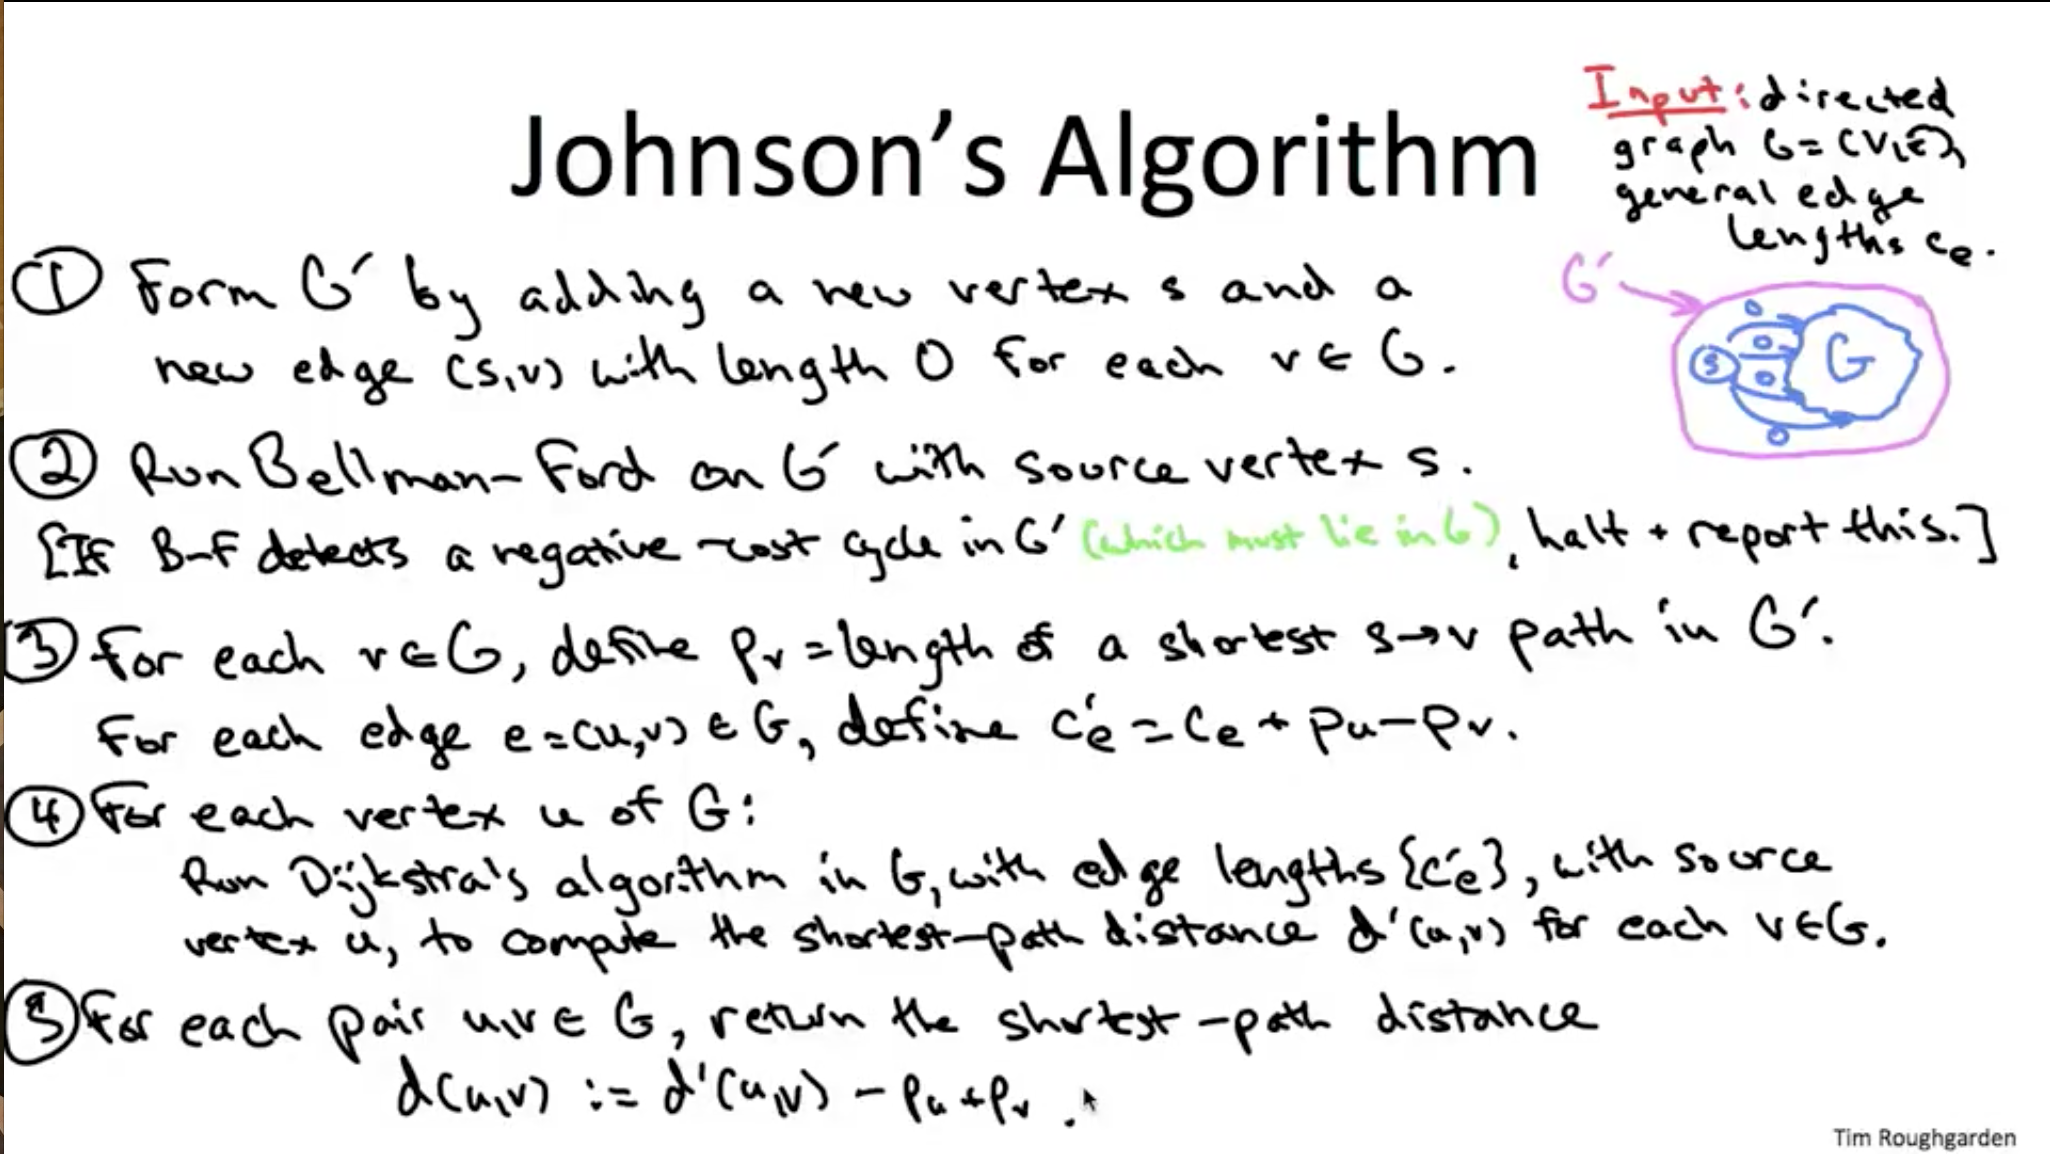 Johnson's Algorithm
Input: directed
graph G=(V,E),
general edge
lengths ce.
① Form G' by adding a new vertex s and a
new edge (s,v) with length 0 for each v ∈ G.
G'
0
0
0
0
s
G
② Run Bellman-Ford on G' with source vertex s.
[If B-F detects a negative-cost cycle in G' (which must lie in G), halt + report this.]
③ For each v ∈ G, define pv = length of a shortest s→v path in G'.
For each edge e=(u,v) ∈ G, define c'e = ce + pu - pv.
④ For each vertex u of G:
Run Dijkstra's algorithm in G, with edge lengths {c'e}, with source
vertex u, to compute the shortest-path distance d'(u,v) for each v ∈ G.
⑤ For each pair u,v ∈ G, return the shortest-path distance
d(u,v) := d'(u,v) - pu + pv.
Tim Roughgarden